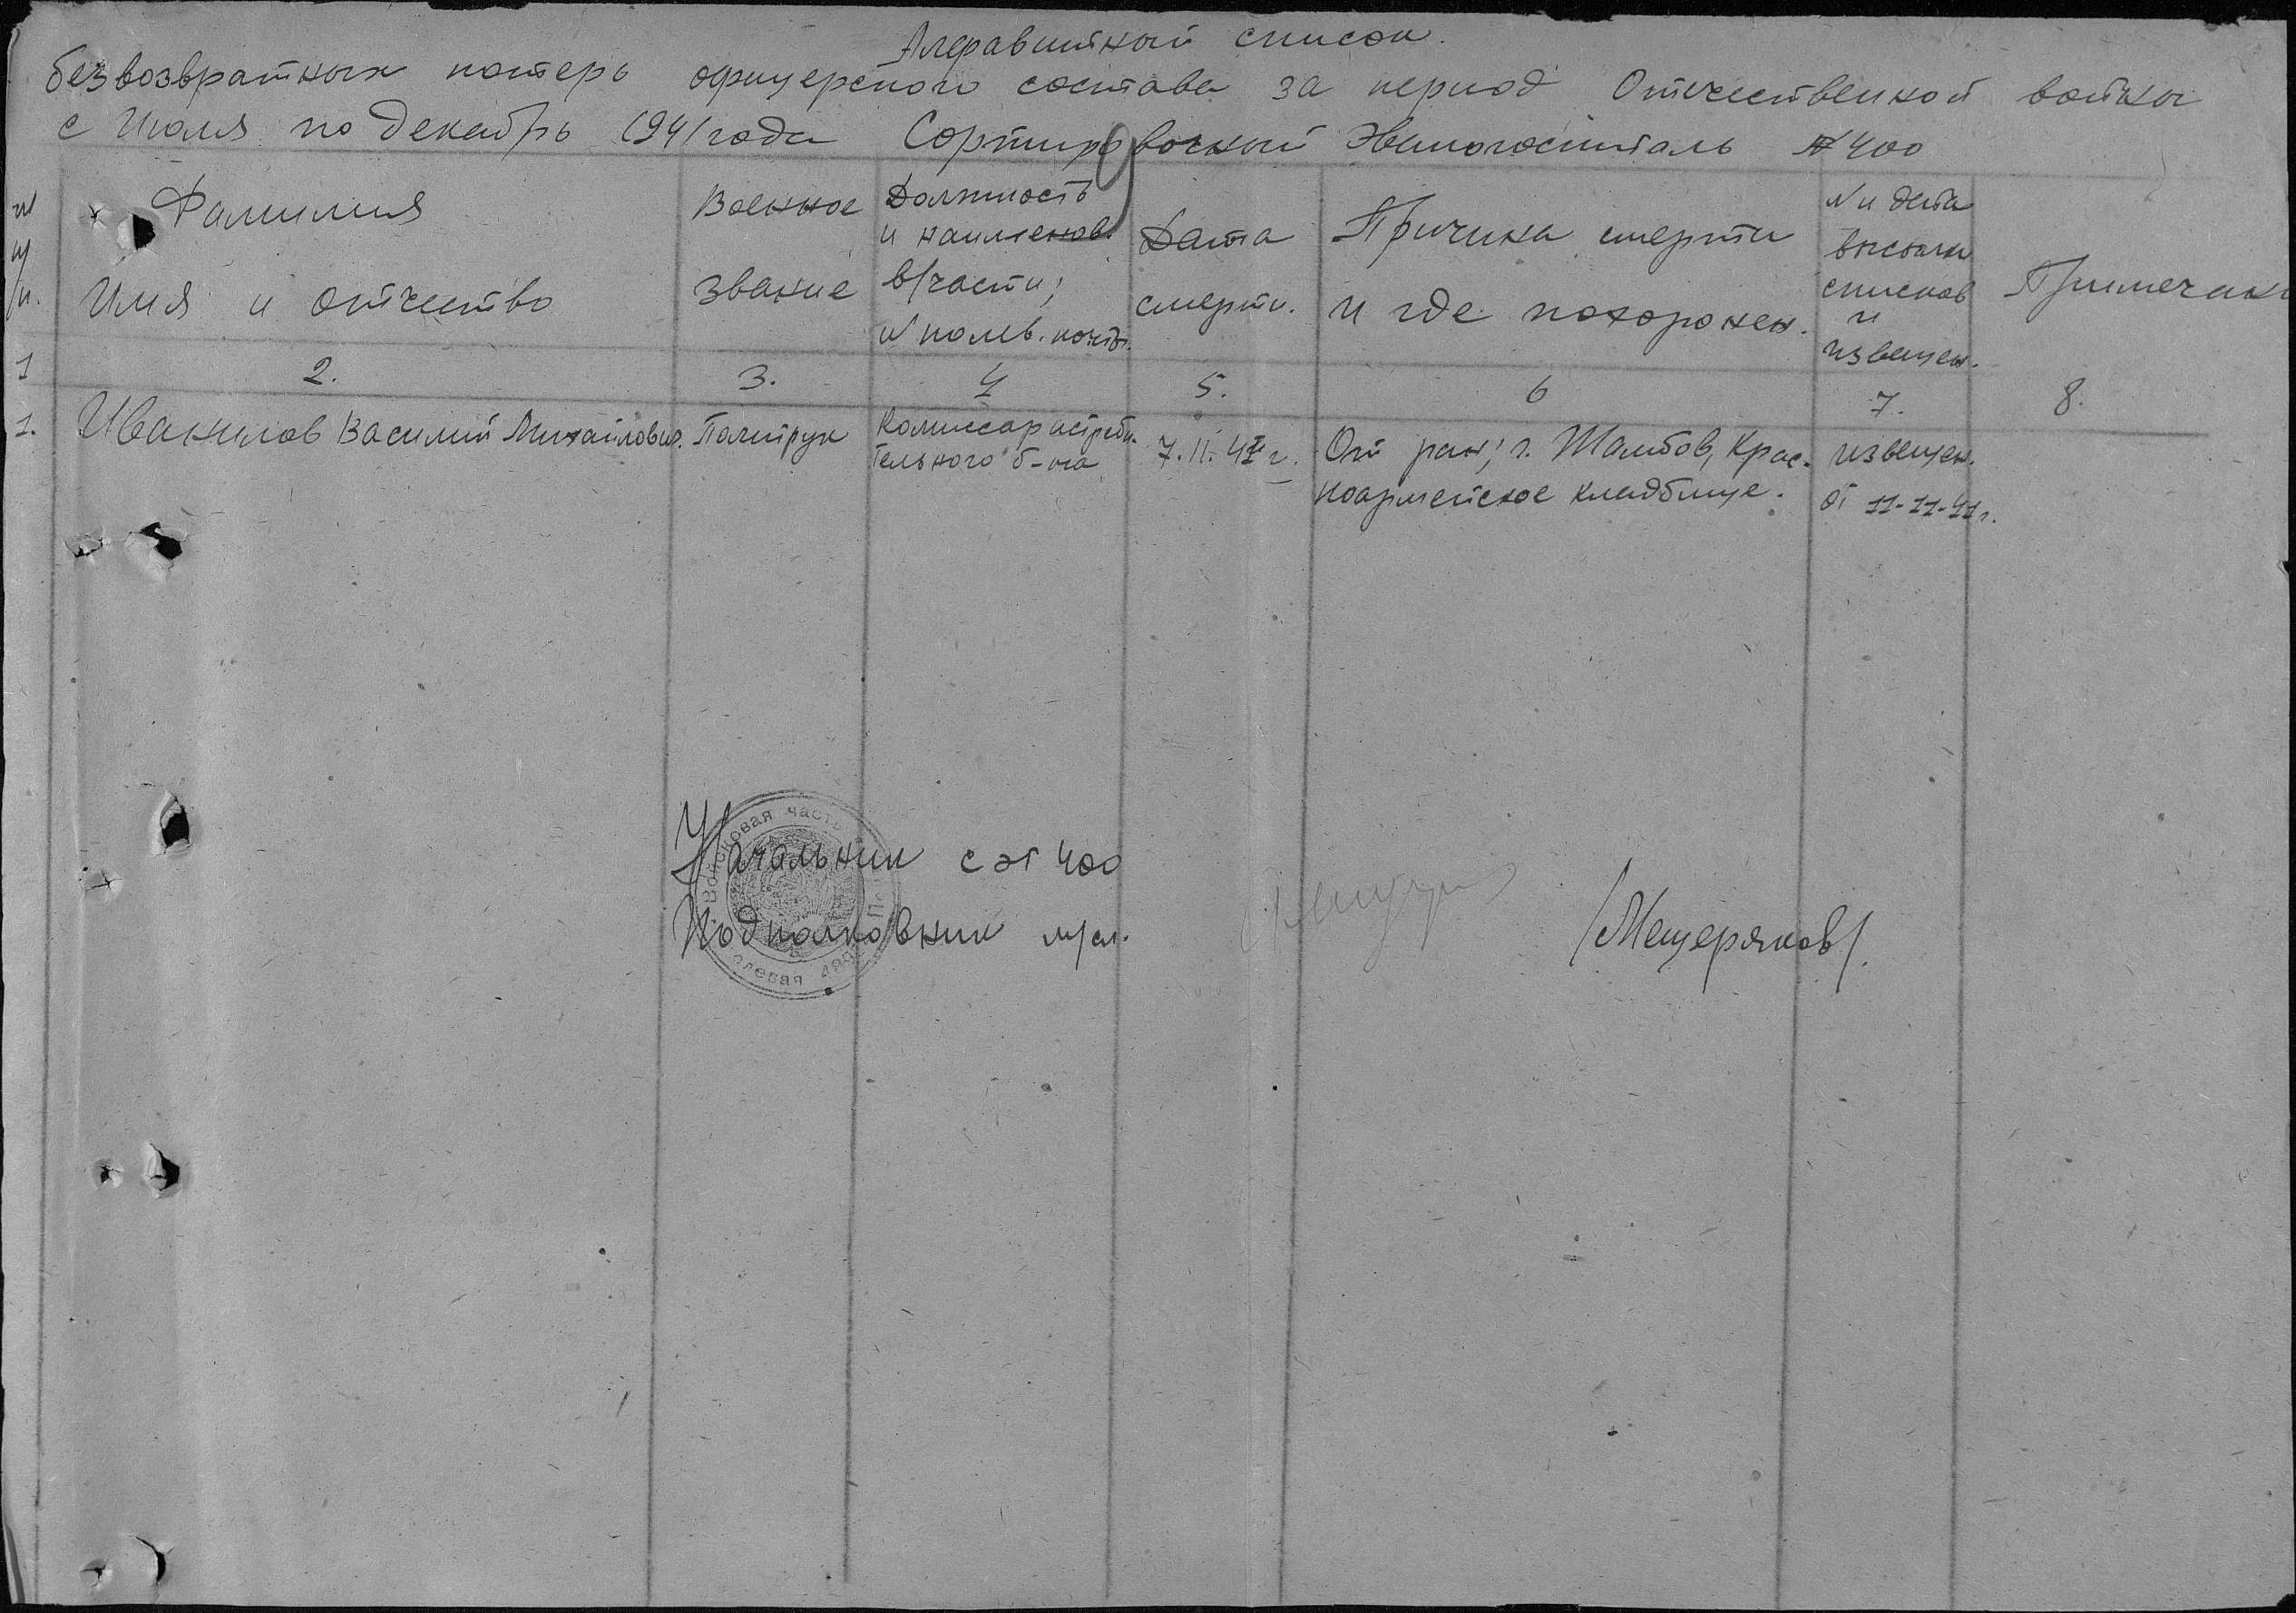 Алфавитный список.
безвозвратных потерь офицерского состава за период Отечественной войны
с Июля по декабрь 1941 года Сортировочный Эвакогоспиталь №400
№ п/п.
Фамилия
Имя и отчество
Военное
звание
Должность
и наименов.
в/части;
№ полев. почты.
Дата
смерти.
Причина смерти
и где похоронен.
№ и дата
высылки
списков
и
извещен.
Примечани
1 2. 3. 4 5. 6 7. 8.
1. Иванилов Василий Михайлович. Политрук
Комиссар истреби-
тельного б-на
7.11.41 г.
От ран; г. Тамбов, Крас-
ноармейское кладбище.
извещен.
от 11-11-41 г.
Начальник СЭГ 400
Подполковник м/сл.
/Мещеряков/.
Войсковая часть
Полевая